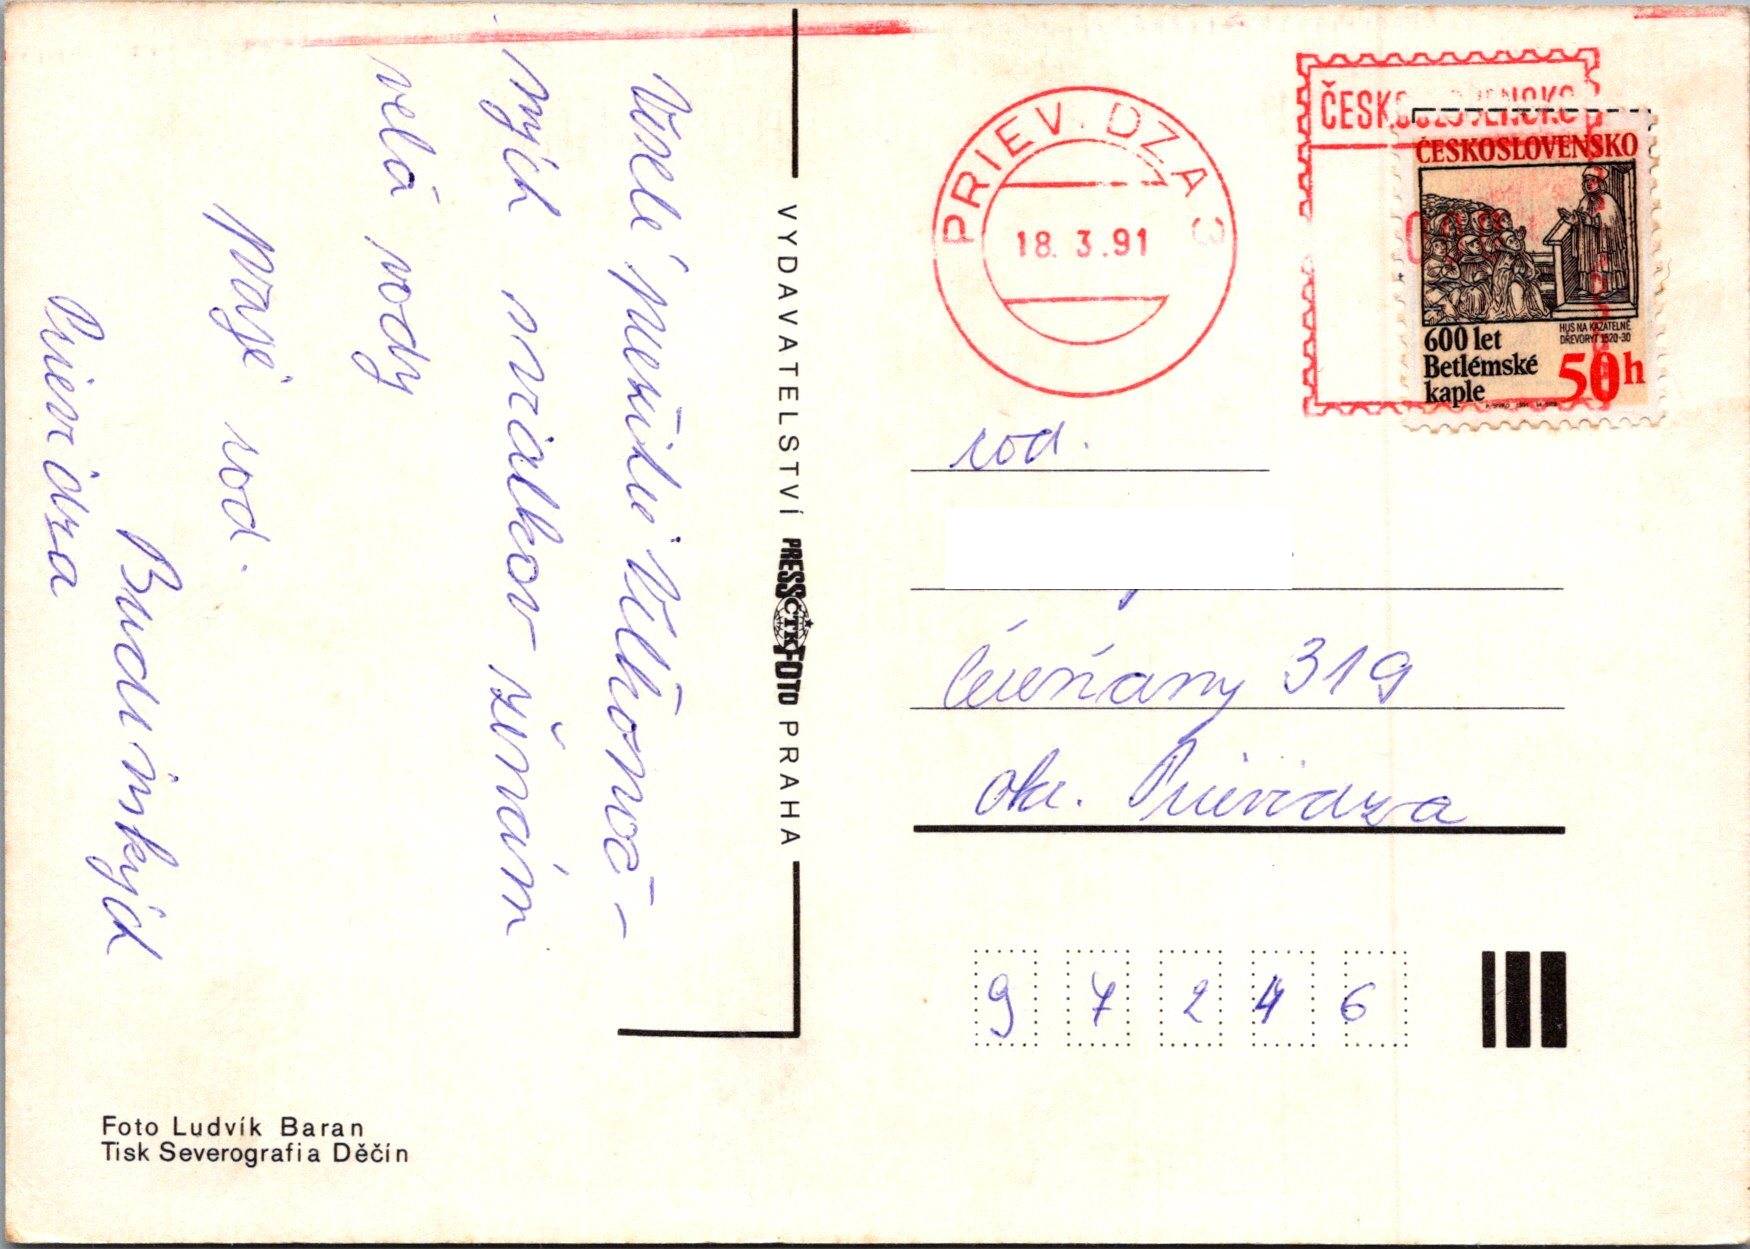 Veselé prežitie Veľkonoč-
ných sviatkov žinám
velá vody
praje rod.
Budinských
Prievidza
VYDAVATELSTVÍ PRESSFOTO PRAHA
ČTK
Foto Ludvík Baran
Tisk Severografia Děčín
PRIEV. DZA 3
18. 3.91
ČESKOSLOVENSKO
ČESKOSLOVENSKO
HUS NA KAZATELNĚ
DŘEVORYT 1520-30
600 let
Betlémské
kaple
50h
rod.
319
okr. Prievidza
9 7 2 4 6